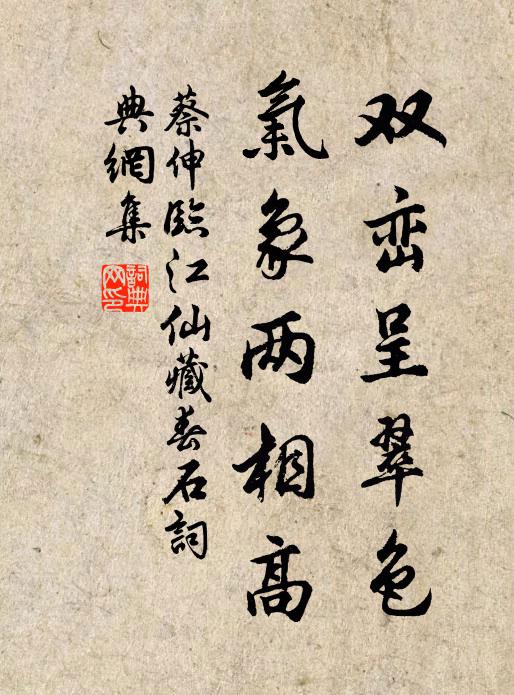 双峦呈翠色
氣象两相高
蔡伸臨江仙藏春石詞
典網集
詞典網印